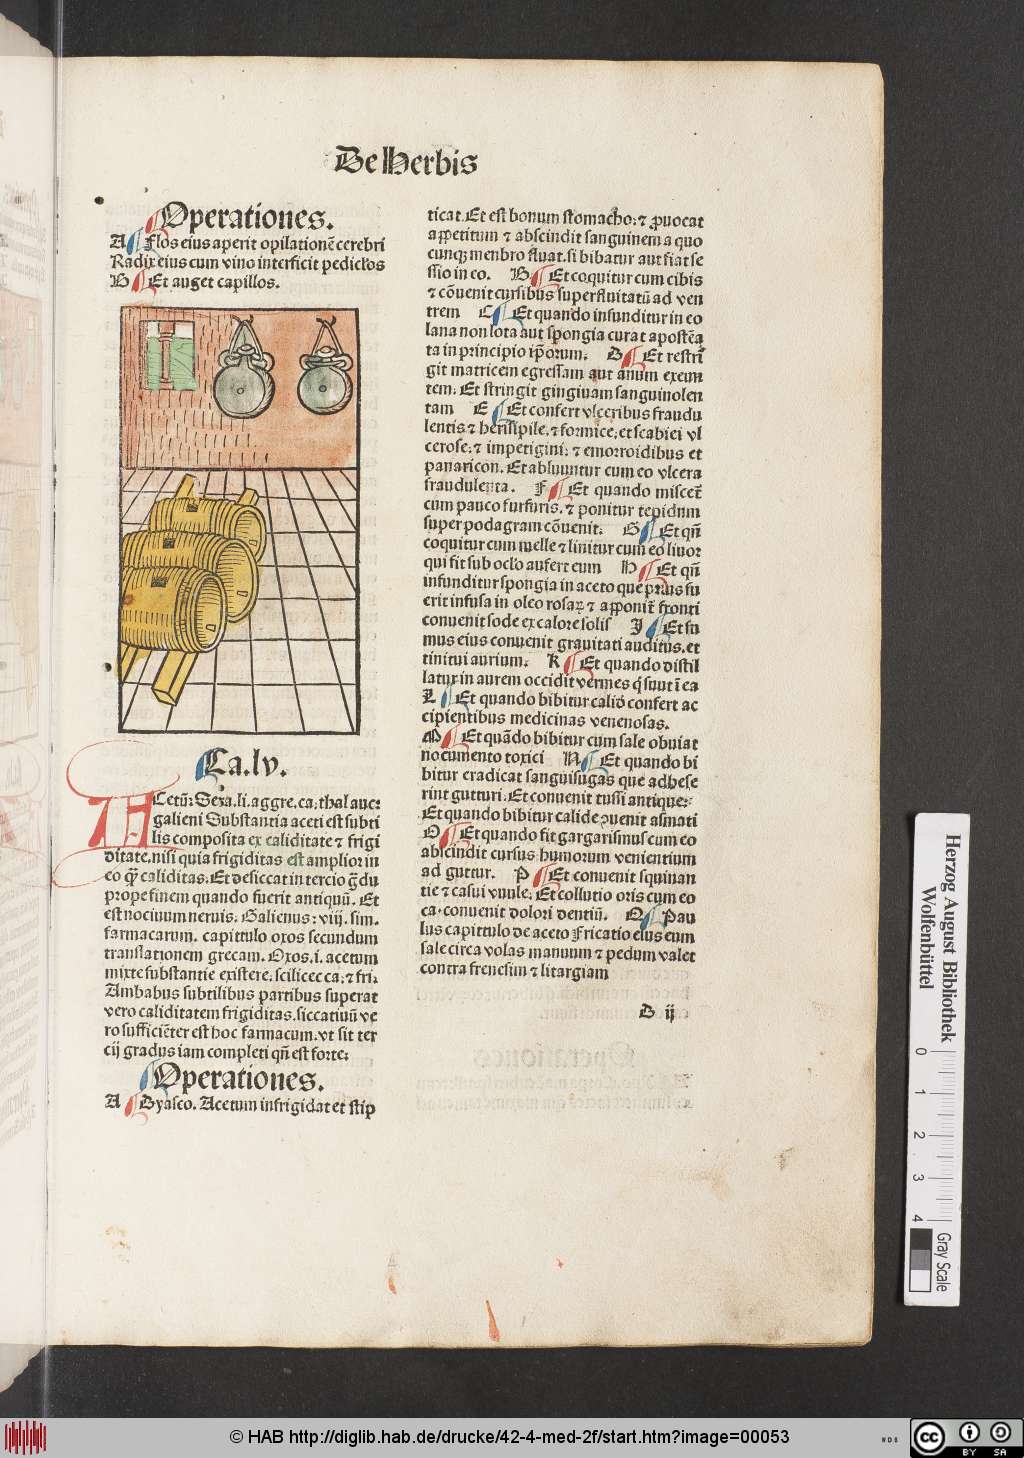 De Herbis
Operationes.
A Flos eius aperit opilationē cerebri
Radix eius cum vino interficit pediclos
B Et auget capillos.
Ca.lv.
ACetū: Sera.li.aggre.ca:thal auc:
galieni Substantia aceti est subti
lis composita ex caliditate ⁊ frigi
ditate.nisi quia frigiditas est amplior in
eo q̄ȝ caliditas: Et desiccat in tercio gͣdu
prope finem quando fuerit antiquū. Et
est nociuum neruis: Galienus: viij. sim.
farmacarum. capittulo oxos secundum
translationem grecam. Oxos.i. acetum
mixte substantie existere: scilicec ca:⁊ fri:
Ambabus subtilibus partibus superat
vero caliditatem frigiditas. siccatiuū ve
ro sufficiēter est hoc farmacum.vt sit ter
cij gradus iam completi qn̄ est forte:
Operationes.
A Dyasco. Acetum infrigidat et stip
ticat.Et est bonum stomacho:⁊ ꝓuocat
appetitum ⁊ abscindit sanguinem a quo
cunqȝ menbro fluat.si bibatur aut fiat se
ssio in eo. B Et coquitur cum cibis
⁊ cōuenit cursibus superfluitatū ad ven
trem C Et quando infunditur in eo
lana non lota aut spongia curat apostēa
ta in principio ip̄orum: D Et restrī
git matricem egressam aut anum exeun
tem: Et stringit gingiuam sanguinolen
tam E Et confert vlceribus fraudu
lentis ⁊ herisipile.⁊ formice.et scabiei vl
cerose:⁊ impetigini:⁊ emorroidibus et
panaricon. Et abluuntur cum eo vlcera
fraudulenta. F Et quando miscet̄
cum pauco furfuris.⁊ ponitur tepidum
super podagram cōuenit: G Et qn̄
coquitur cum melle ⁊ linitur cum eo liuor
qui fit sub oclo aufert eum H Et qn̄
infunditur spongia in aceto que prius fu
erit infusa in oleo rosaꝝ ⁊ apponit̄ fronti
conuenit sode ex calore solis I Et fu
mus eius conuenit grauitati auditus.et
tinitui aurium: K Et quando distil
latur in aurem occidit vermes q̇ sunt ī ea
L Et quando bibitur calid confert ac
cipientibus medicinas venenosas.
M Et quādo bibitur cum sale obuiat
nocumento toxici N Et quando bi
bitur eradicat sanguisugas que adhese
rint gutturi: Et conuenit tussi antique:
Et quando bibitur calide ꝯuenit asmati
O Et quando fit gargarismus cum eo
abscindit cursus humorum venientium
ad guttur. P Et conuenit squinan
tie ⁊ casui vuule: Et collutio oris cum eo
ca.conuenit dolori dentiū. Q Pau
lus capittulo de aceto Fricatio eius cum
sale circa volas manuum ⁊ pedum valet
contra frenesim ⁊ litargiam
D ij
Herzog August Bibliothek
Wolfenbüttel
0 1 2 3 4
Gray Scale
© HAB http://diglib.hab.de/drucke/42-4-med-2f/start.htm?image=00053
WDB
cc BY SA